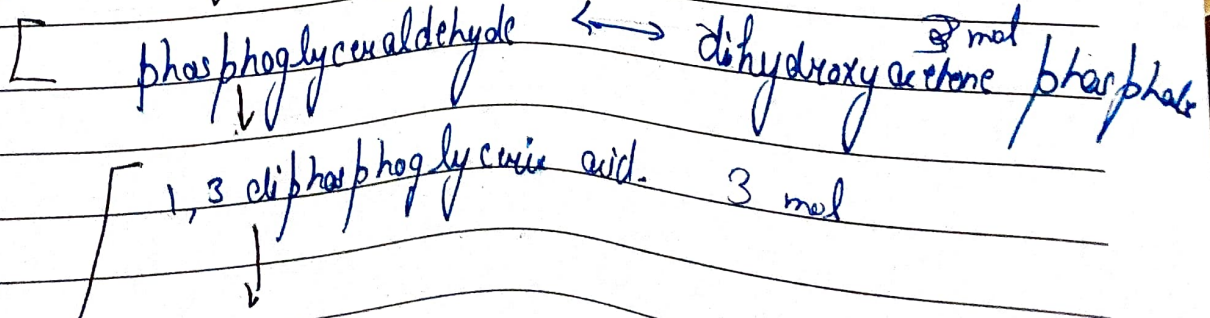 phosphoglyceraldehyde ⟷ dihydroxyacetone phosphate
mol
↓
1,3 diphosphoglyceric acid. 3 mol
↓